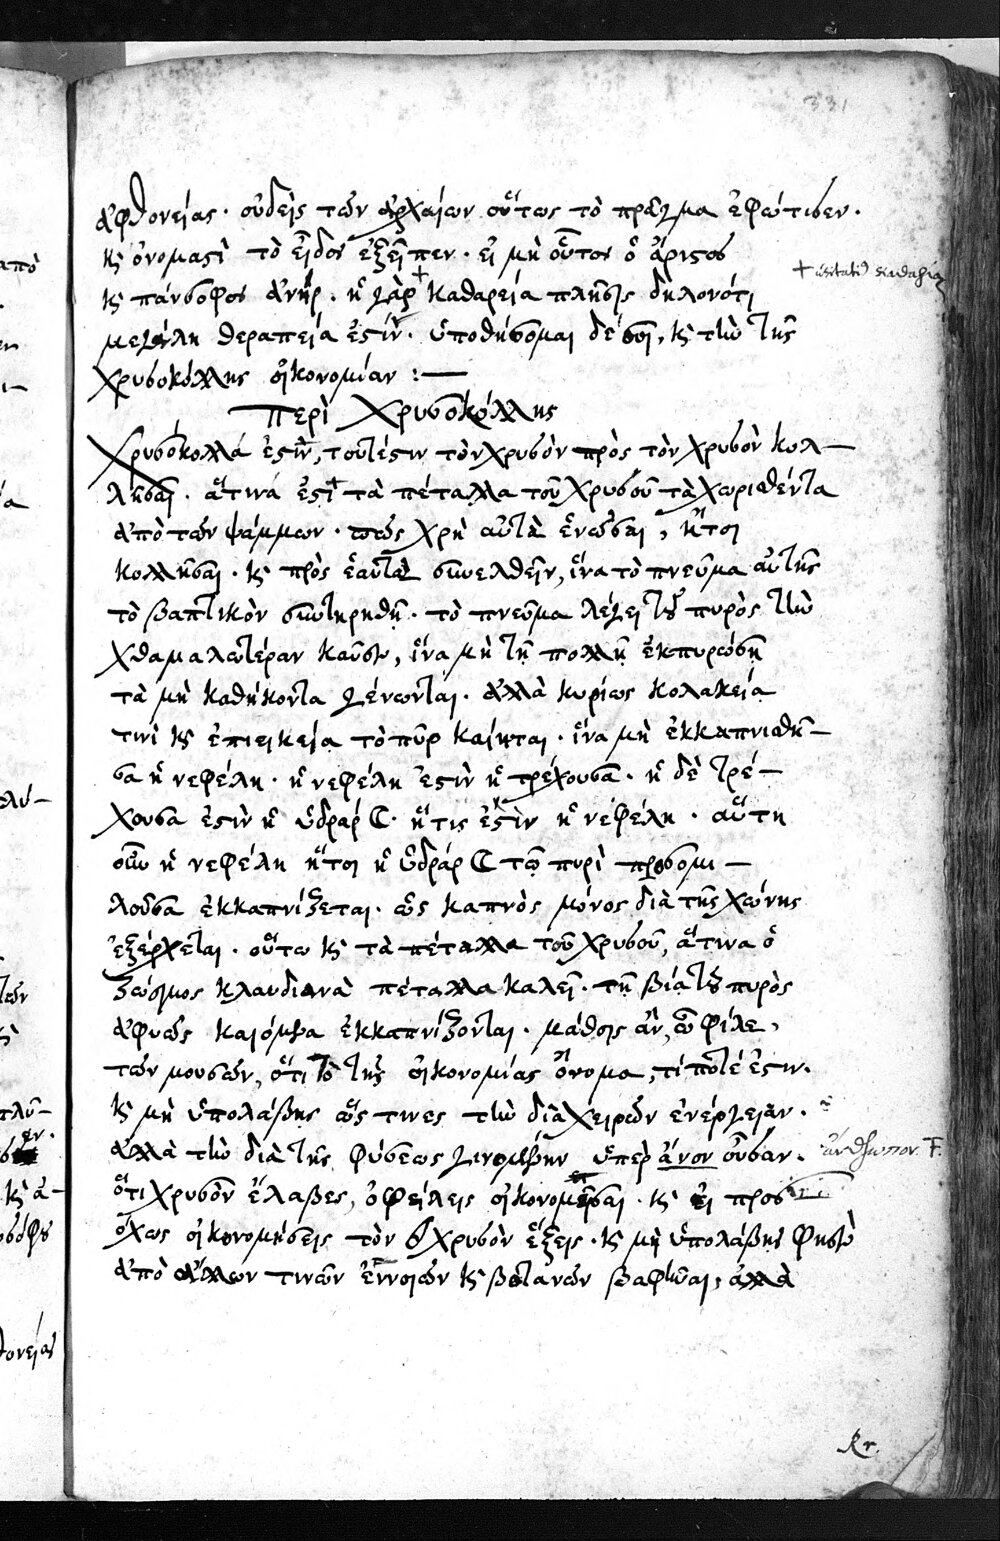 331
ἀφθονείας. οὐδεὶς τῶν ἀρχαίων οὕτως τὸ πρᾶγμα ἐφώτισεν.
κ ὀνομαστὶ τὸ εἶδος ἐξεῖπεν. εἰ μὴ οὗτος ὁ ἄριστος
κ πάνσοφος ἀνήρ. ἡ γὰρ + καθαρεία πλήρης δηλονότι
μεγάλη θεραπεία ἐστίν. ὑποθήσομαι δέ σοι, κ τὴν τῆς
χρυσοκόλλης οἰκονομίαν :—
Περὶ Χρυσοκόλλης
Χρυσόκολλά ἐστιν, τουτέστιν τὸν χρυσὸν πρὸς τὸν χρυσὸν κολ-
λῆσαι. ἅτινά ἐστι τὰ πέταλλα τοῦ χρυσοῦ τὰ χωρισθέντα
ἀπὸ τῶν ψάμμων. πῶς χρὴ αὐτὰ ἑνῶσαι, ἤτοι
κολλῆσαι. κ πρὸς ἑαυτὰ συνελθεῖν, ἵνα τὸ πνεῦμα αὐτῆς
τὸ βαπτικὸν συντηρηθῇ. τὸ πνεῦμα λέγει τοῦ πυρὸς τὴν
χθαμαλωτέραν καῦσιν, ἵνα μὴ τῇ πολλῇ ἐκπυρώσῃ
τὰ μὴ καθήκοντα γένωνται. ἀλλὰ κυρίως κολακεία
τινὶ κ ἐπιεικεία τὸ πῦρ καίηται. ἵνα μὴ ἐκκαπνισθῇ-
σα ἡ νεφέλη. ἡ νεφέλη ἐστὶν ἡ τρέχουσα. ἡ δὲ τρέ-
χουσα ἐστὶν ἡ ὑδράρ C. ἥτις ἐστὶν ἡ νεφέλη. αὕτη
οὖν ἡ νεφέλη ἤτοι ἡ ὑδράρ C τῷ πυρὶ προσομι-
λοῦσα ἐκκαπνίζεται. ὡς καπνὸς μόνος διὰ τῆς χώνης
ἐξέρχεται. οὕτω κ τὰ πέταλλα τοῦ χρυσοῦ, ἅτινα ὁ
Ζώσιμος κλαυδιανὰ πέταλλα καλεῖ. τῇ βίᾳ τοῦ πυρὸς
ἀφυῶς καιόμενα ἐκκαπνίζονται. μάθοις ἂν, ὦ φίλε,
τῶν μουσῶν, ὅτι τὸ τῆς οἰκονομίας ὄνομα, τί ποτέ ἐστιν.
κ μὴ ὑπολάβῃς ὥς τινες τὴν διὰ χειρῶν ἐνέργειαν.
ἀλλὰ τὴν διὰ τῆς φύσεως γινομένην ὑπὲρ ἄνον οὖσαν. ἄνθρωπον F.
ὅτι χρυσὸν ἔλαβες, ὀφείλεις οἰκονομῆσαι. κ εἰ προσ
όχως οἰκονομήσεις τὸν χρυσὸν ἕξεις. κ μὴ ὑπολάβῃς φησὶν
ἀπὸ ἄλλων τινῶν ἐννοιῶν κ βοτανῶν βαφῆναι, ἀλλὰ
Rr